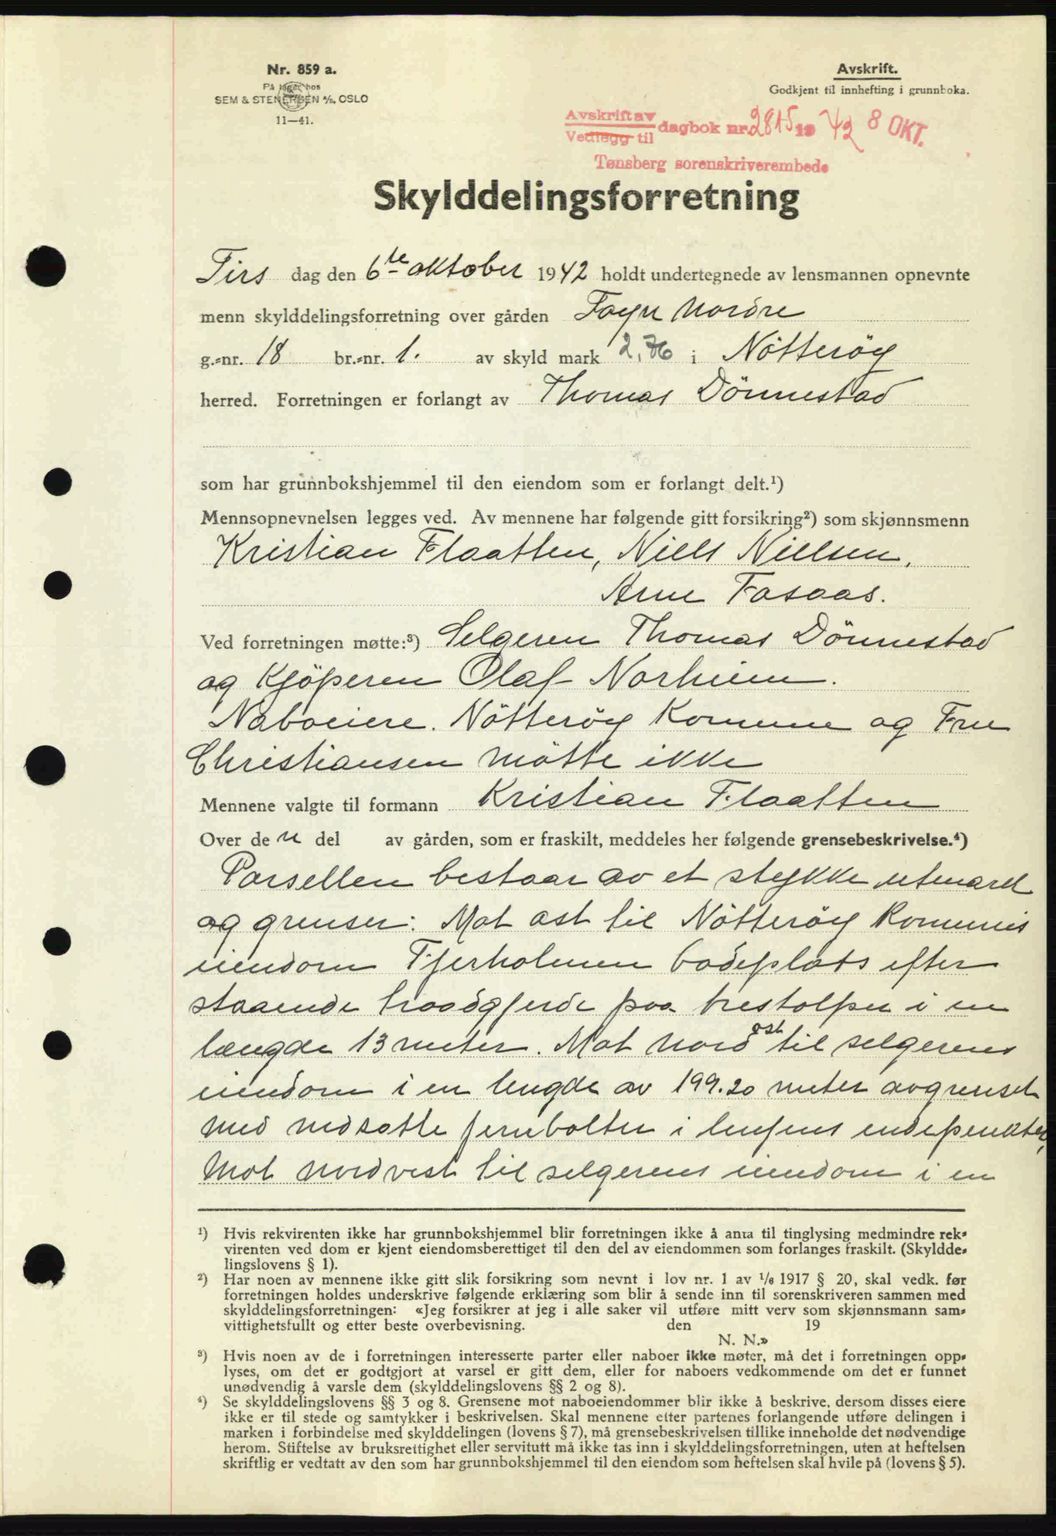 Nr. 859 a.
På lager hos
SEM & STENERSEN A/S, OSLO
11—41.
Avskrift.
Godkjent til innhefting i grunnboka.
Avskrift av
Vedlegg til
dagbok nr. 2815 19 42 8 OKT.
Tønsberg sorenskriverembede
Skylddelingsforretning
Tirs dag den 6te oktober 1942 holdt undertegnede av lensmannen opnevnte
menn skylddelingsforretning over gården Foyn Nordre
g.-nr. 18 br.-nr. 1. av skyld mark 2,76 i Nötteröy
herred. Forretningen er forlangt av Thomas Dönnestad
som har grunnbokshjemmel til den eiendom som er forlangt delt.¹)
Mennsopnevnelsen legges ved. Av mennene har følgende gitt forsikring²) som skjønnsmenn
Kristian Flaatten, Niels Nielsen,
Arne Fosaas.
Ved forretningen møtte:³) Selgeren Thomas Dönnestad
og Kjöperen Olaf Norheim.
Naboeiere. Nötteröy Komune og Fru
Christiansen mötte ikke
Mennene valgte til formann Kristian Flaatten
Over de n del av gården, som er fraskilt, meddeles her følgende grensebeskrivelse.⁴)
Parsellen bestaar av et stykke utmark
og grenser: Mot öst til Nötteröy Komunes
eiendom Fjerholmen badeplats efter
staaende traadgjerde paa trestolper i en
længde 13 meter. Mot nord öst til selgerens
eiendom i en lengde av 199.20 meter avgrenset
med nedsatte jernbolter i linjens endepunkter,
Mot nordvest til selgerens eiendom i en
¹) Hvis rekvirenten ikke har grunnbokshjemmel blir forretningen ikke å anta til tinglysing medmindre rek-
virenten ved dom er kjent eiendomsberettiget til den del av eiendommen som forlanges fraskilt. (Skyldde-
lingslovens § 1).
²) Har noen av mennene ikke gitt slik forsikring som nevnt i lov nr. 1 av 1/6 1917 § 20, skal vedk. før
forretningen holdes underskrive følgende erklæring som blir å sende inn til sorenskriveren sammen med
skylddelingsforretningen: «Jeg forsikrer at jeg i alle saker vil utføre mitt verv som skjønnsmann sam-
vittighetsfullt og etter beste overbevisning. den 19
N. N.»
³) Hvis noen av de i forretningen interesserte parter eller naboer ikke møter, må det i forretningen opp-
lyses, om det er godtgjort at varsel er gitt dem, eller for naboers vedkommende om det er funnet
unødvendig å varsle dem (skylddelingslovens §§ 2 og 8).
⁴) Se skylddelingslovens §§ 3 og 8. Grensene mot naboeiendommer blir ikke å beskrive, dersom disses eiere
ikke er til stede og samtykker i beskrivelsen. Skal mennene etter partenes forlangende utføre delingen i
marken i forbindelse med skylddelingen (lovens § 7), må grensebeskrivelsen tillike inneholde det nødvendige
herom. Stiftelse av bruksrettighet eller servitutt må ikke tas inn i skylddelingsforretningen, uten at heftelsen
skriftlig er vedtatt av den som har grunnbokshjemmel til den eiendom som heftelsen skal hvile på (lovens § 5).